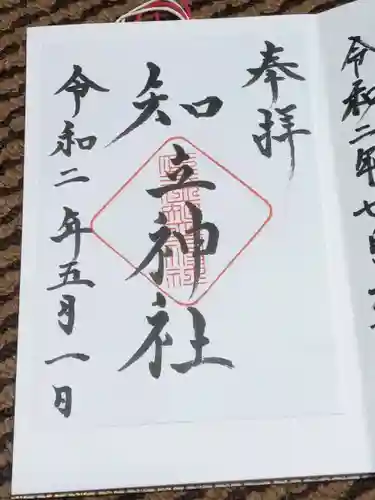 奉拝
知立神社
令和二年五月一日
令和二年七月